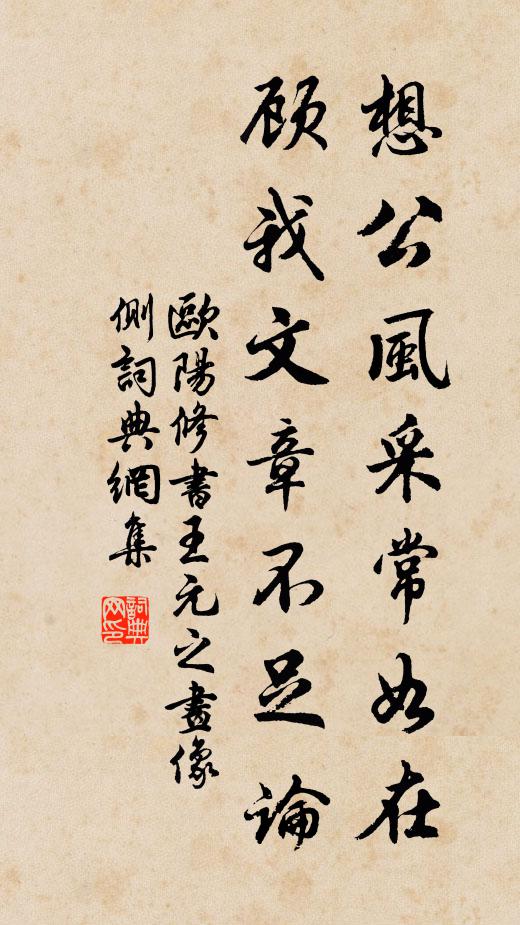 想公風采常如在
顾我文章不足论
歐陽修書王元之畫像
側詞典網集
詞典网印